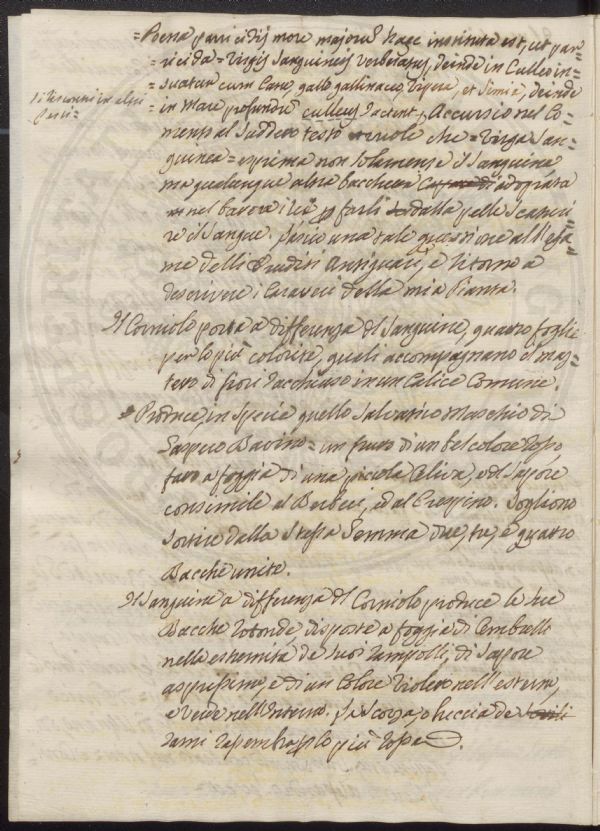 =Poena parricidij more majorum haec instituta est, ut par=
=ricida =Virgis Sanguineis verberatus, deinde in Culleo in=
=suatur cum Cane, gallo gallinaceo, Vipera, et Simia, deinde
in mare profundum culleus Jactent, Accursio nel Co=
mento al Suddetto testo vuole che =Virga San=
guinea= esprima non Solamente il Sanguine
ma qualunque altra
farli dalla pelle Scaturi
re il Sangue. Lascio una tale questione all'esa
me delli Eruditi Antiquari, e ritorno a
descrivere i Caratteri della mia Pianta.
Il Corniolo porta a differenza del Sanguine, quattro foglie
per lo più colorite, quali accompagnano il maz=
zetto di fiori racchiuso in un Calice Comune.
Produce, in Specie quello Salvatico Maschio di
Gaspero Bavino= un frutto di un bel colore rosso
fatto a foggia di una piccola Oliva, e di Sapore
consimile al Berberi, ed al Crespino. Sogliono
Sortire dalla Stessa Gemma due, tre, e quattro
Bacche unite.
Il Sanguine a differenza del Corniolo produce le Sue
Bacche rotonde disposte a foggia di Ombrelle
nelle estremità de Suoi rampolli, di Sapore
asprissimo, e di un Colore Violetto nell'esterno,
e Verde nell'Interno. La Scorza, o buccia de
rami rassembra per lo più rossa